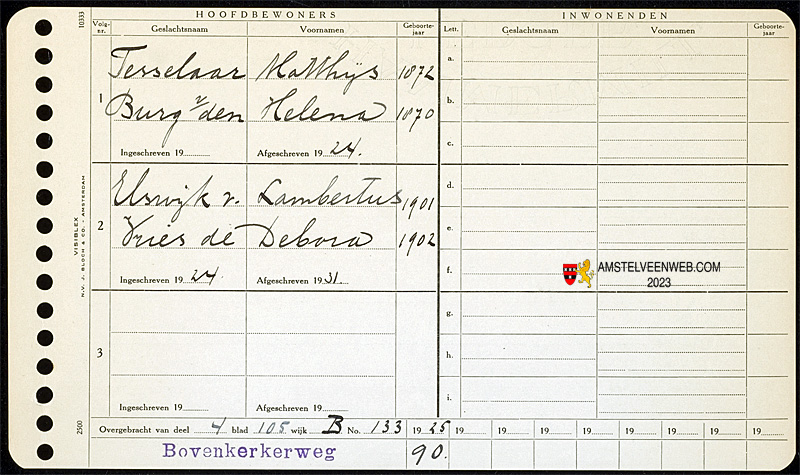 HOOFDBEWONERS INWONENDEN
Volg-nr. Geslachtsnaam Voornamen Geboorte-jaar Lett. Geslachtsnaam Voornamen Geboorte-jaar
10333
1
Tesselaar Matthijs 1872
Burg v den Helena 1870
Ingeschreven 19 Afgeschreven 19 24.
2
Elswijk v. Lambertus 1901
Vries de Debora 1902
Ingeschreven 19 24. Afgeschreven 19 31.
3
Ingeschreven 19 Afgeschreven 19
a.
b.
c.
d.
e.
f.
g.
h.
i.
AMSTELVEENWEB.COM
2023
VISIBLEX
N.V. J. BLOCH & CO. - AMSTERDAM
2500
Overgebracht van deel 4 blad 105 wijk B No. 133 19 25 19 19 19 19 19 19 19 19
Bovenkerkerweg 90.